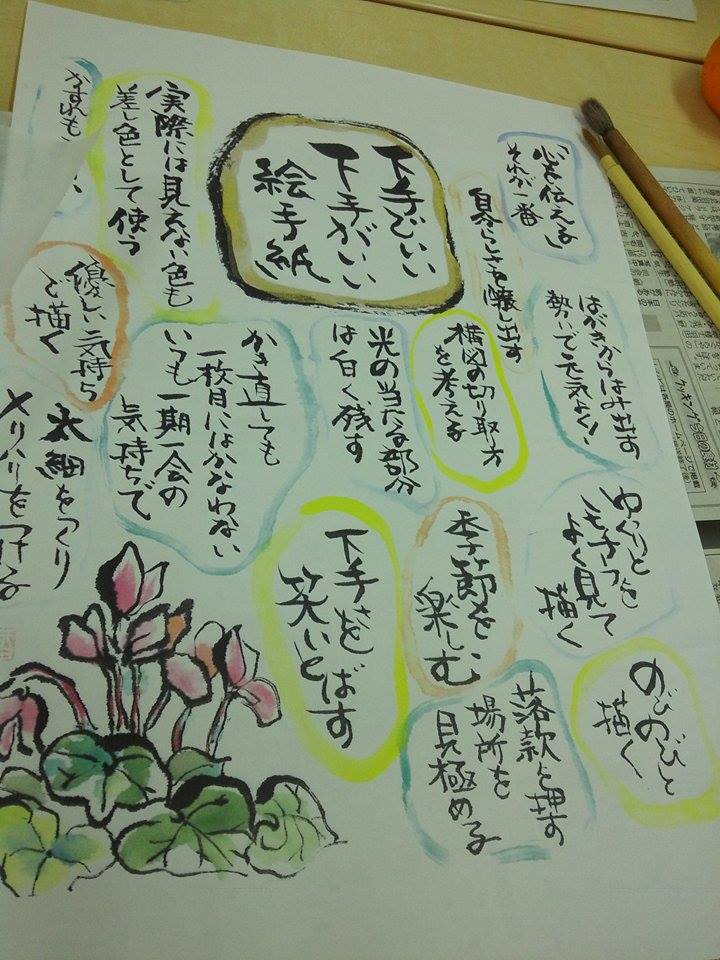 下手でいい
下手がいい
絵手紙
「心を伝える」
それが一番
らしさを醸出す
実際には見えない色も
差し色として使う
かすれも
はがきからはみ出す
勢いで元気よく!
構図の切り取方
を考える
光の当たる部分
は白く残す
かき直しても
一枚目にはかなわない
いつも一期一会の
気持ちで
優しい気持ち
で描く
太細をつくり
メリハリをつける
ゆっくりと
モチーフを
よく見て
描く
季節を
楽しむ
下手さを
笑いとばす
のびのびと
描く
落款を押す
場所を
見極める
クッキング